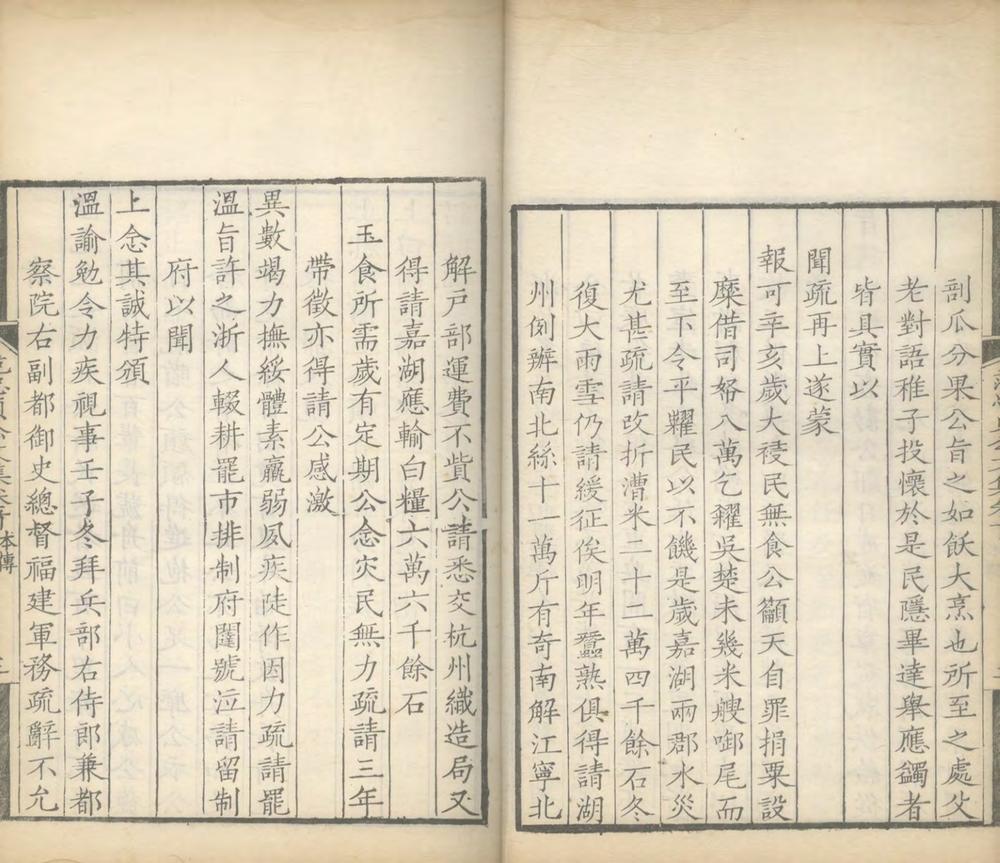 剖瓜分果公旨之如飫大烹也所至之處父
老對語稚子投懷於是民隱畢達舉應蠲者
皆具實以
聞疏再上遂蒙
報可辛亥歲大祲民無食公籲天自罪捐粟設
糜借司帑八萬乞糴吳楚未幾米艘啣尾而
至下令平糶民以不饑是歲嘉湖兩郡水災
尤甚疏請改折漕米二十二萬四千餘石冬
復大雨雪仍請緩征俟明年蠶熟俱得請湖
州例辦南北絲十一萬斤有奇南解江寧北
解戸部運費不貲公請悉交杭州織造局又
得請嘉湖應輸白糧六萬六千餘石
玉食所需歲有定期公念災民無力疏請三年
帶徵亦得請公感激
異數竭力撫綏體素羸弱夙疾陡作因力疏請罷
溫旨許之浙人輟耕罷市排制府闥號泣請留制
府以聞
上念其誠特頒
溫諭勉令力疾視事壬子冬拜兵部右侍郎兼都
察院右副都御史總督福建軍務疏辭不允
本傳